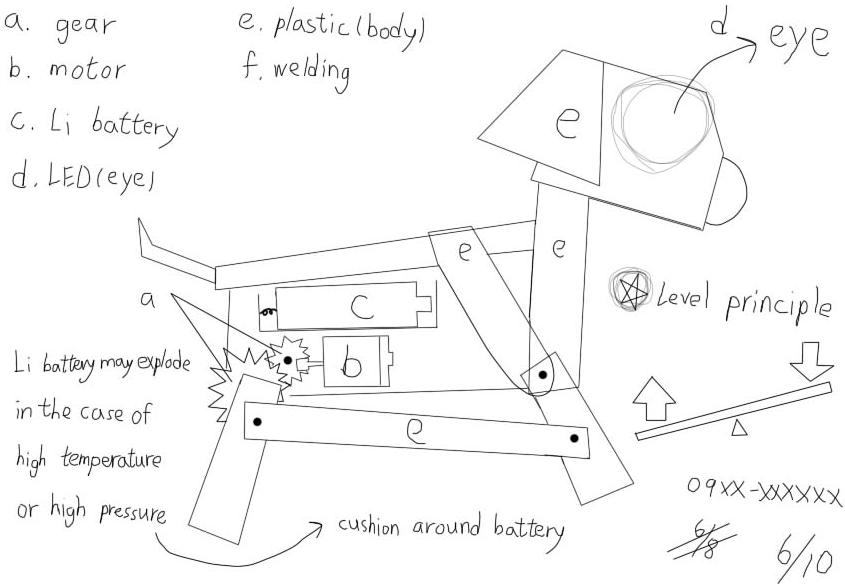 a. gear
b. motor
c. Li battery
d. LED(eye)
e. plastic(body)
f. welding
d
eye
e
e
e
a
c
b
e
Level principle
Li battery may explode
in the case of
high temperature
or high pressure
cushion around battery
09xx-xxxxxx
6/8
6/10